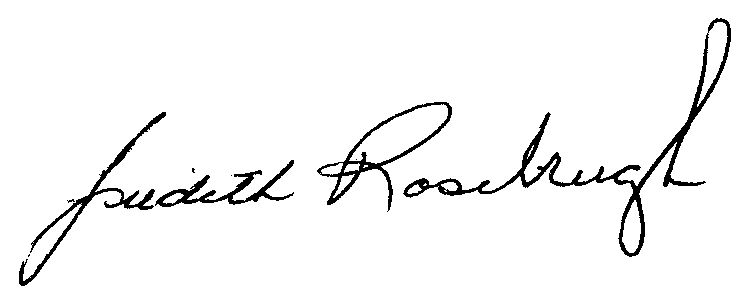 Judith Rosebrugh